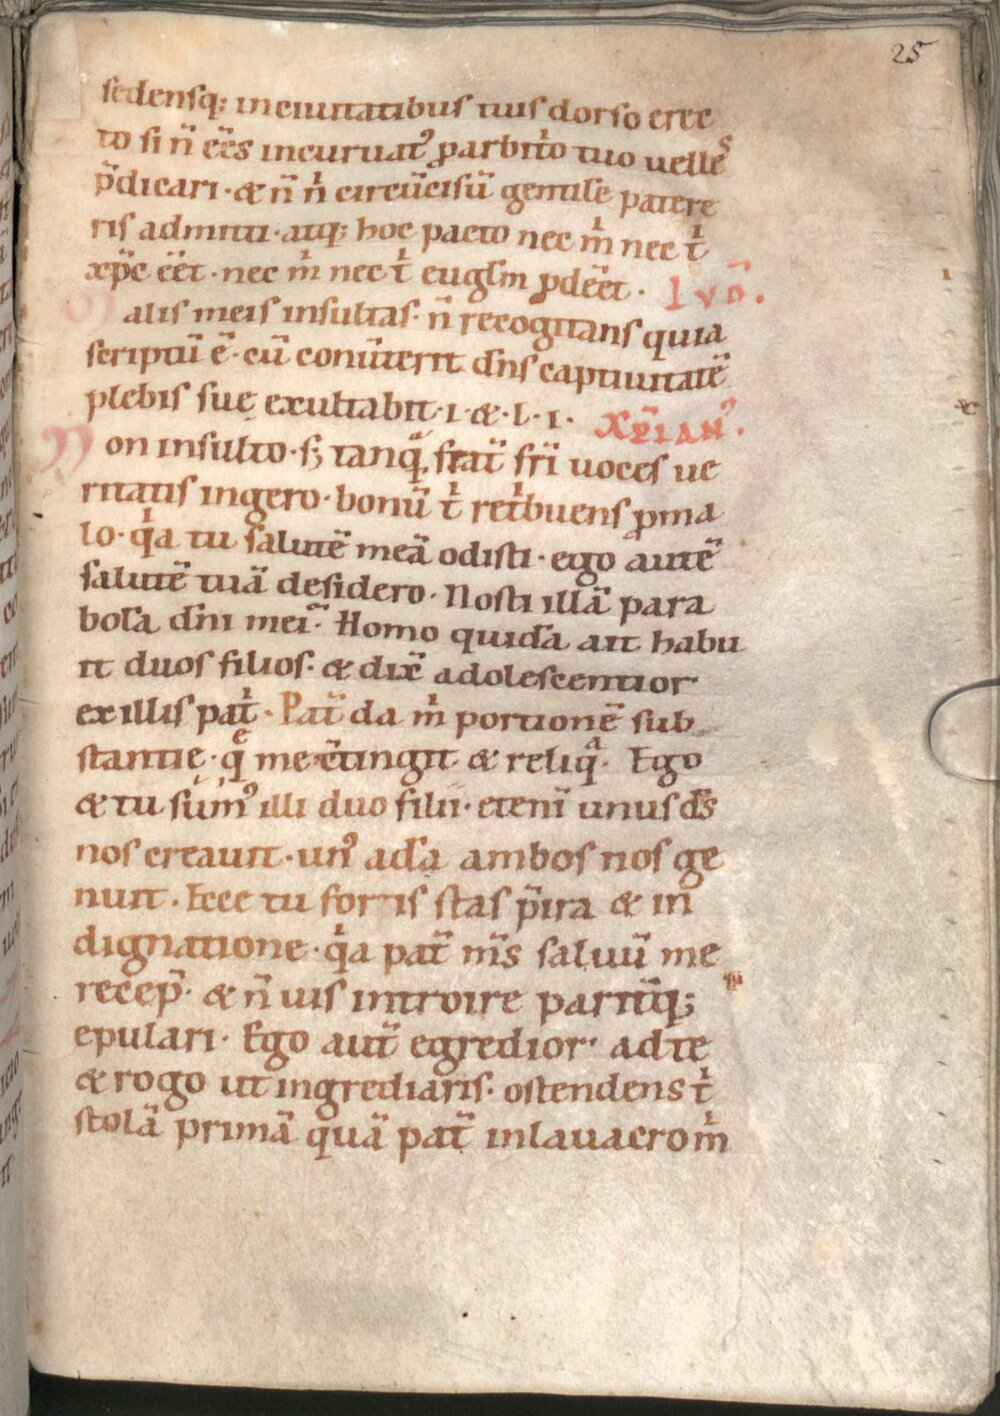 25
sedensq; in ciuitatibus tuis dorso erec
to si n̄ eēs incuruat᷒ ꝓ arbit̓o tuo uelles
p̄dicari · & n̄ n̓ circūcisū gentilē patere
ris admitti · atq; hoc pacto nec m̓ nec t̓
xp̄c eēt · nec m̓ nec t̓ euglm̄ ꝓdeēt · Ivd̄ .
Malis meis insultas · n̄ recogitans quia
scriptū ē · cū conūterit dn̄s captiuitatē
plebis suę exultabit · i · & · l · i · Xp̄ian᷒ .
Non insulto · s; tanqͣ frat̄ fr̄i uoces ue
ritatis ingero · bonū t̓ ret̓buens ꝓ ma
lo · q̓a tu salutē meā odisti · ego autē
salutē tuā desidero · Nosti illā para
bolā dn̄i mei · Homo quidā ait habu
it duos filios · & dix̄ adolescentior
ex illis pat̓ · Pat̄ da m̓ portionē sub
stantię · q̄ me c̄tingit & reliqͣ · Ego
& tu sum᷒ illi duo filii · etenī unus d̄s
nos creauit · un᷒ adā ambos nos ge
nuit · Ecce tu foris stas p̄ ira & in
dignatione · q̓a pat̄ m̄s saluū me
recep̄ · & n̄ uis introire parit̄q;
epulari · Ego aut̄ egredior · ad te
& rogo ut ingrediaris · ostendens t̓
stolā primā quā pat̄ in lauacro m̓